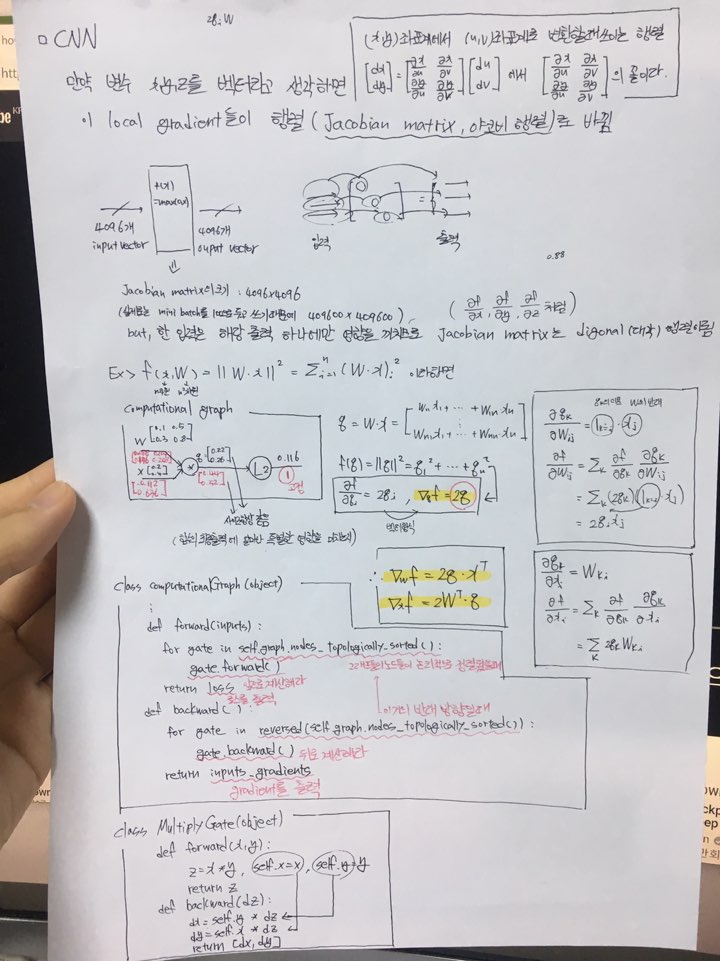 □ CNN
2q_i W
(x,y)좌표계에서 (u,v)좌표계로 변환할때 쓰이는 행렬
[dx dy] = [∂x/∂u ∂x/∂v ∂y/∂u ∂y/∂v] [du dv] 에서 [∂x/∂u ∂x/∂v ∂y/∂u ∂y/∂v] 의 꼴이다.
만약 변수 x,y,z를 벡터라고 생각하면
이 local gradient들이 행렬 (Jacobian matrix, 야코비 행렬)로 바뀜
f(x)
=max(0,x)
4096개
input vector
4096개
ouput vector
입력
출력
0.88
Jacobian matrix의 크기 : 4096×4096
409600 × 409600)
(∂f/∂x, ∂f/∂y, ∂f/∂z 처럼)
but, 한 입력은 해당 출력 하나에만 영향을 끼치므로 Jacobian matrix는 digonal (대각) 행렬이됨
Ex> f(x,W) = ||W·x||² = Σⁿᵢ₌₁(W·x)ᵢ² 이라하면
computational graph
W [0.1 0.5 -0.3 0.8]
x [0.2 0.4]
[0.112 0.636]
*
q [0.22 0.26]
[0.44 0.52]
L2
0.116
1
q = W·x = [W₁₁x₁ + ⋯ + W₁ₙxₙ ⋮ Wₙ₁x₁ + ⋯ + Wₙₙxₙ]
f(q) = ||q||² = q₁² + ⋯ + qₙ²
∂f/∂qᵢ = 2qᵢ , ∇qf = 2q
∂qₖ/∂Wᵢⱼ = 1ₖ₌ᵢ · xⱼ
∂f/∂Wᵢⱼ = Σₖ ∂f/∂qₖ ∂qₖ/∂Wᵢⱼ
= Σₖ(2qₖ)(1ₖ₌ᵢ xⱼ)
= 2qᵢxⱼ
∴ ∇wf = 2q·xᵀ
∇xf = 2Wᵀ·q
∂qₖ/∂xᵢ = Wₖᵢ
∂f/∂xᵢ = Σₖ ∂f/∂qₖ ∂qₖ/∂xᵢ
= Σₖ 2qₖWₖᵢ
class computationalGraph (object)
⋮
def forward(inputs):
for gate in self.graph.nodes_topologically_sorted():
gate.forward()
앞으로 계산해라
return loss
def backward():
이거의 반대 방향일때
for gate in reversed(self.graph.nodes_topologically_sorted()):
gate.backward() 뒤로 계산해라
return inputs_gradients
gradient를 출력
class MultiplyGate(object)
def forward(x,y):
z=x*y, self.x=x, self.y=y
return z
def backward(dz):
dx=self.y * dz
dy=self.x * dz
return [dx, dy]